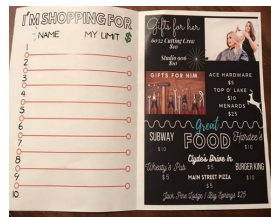 I'M SHOPPING FOR
NAME MY LIMIT $
1
2
3
4
5
6
7
8
9
10
Gifts for her
Cutting Crew
$10
Studio 906
$10
GIFTS FOR HIM
ACE HARDWARE
$5
TOP O' LAKE
$10
MENARDS
$25
Great
FOOD
SUBWAY
$10
Hardee's
$10
Clyde's Drive In
$5
Wheaty's Pub
$5
BURGER KING
$10
MAIN STREET PIZZA
$5
Jack Pine Lodge | Big Springs $25